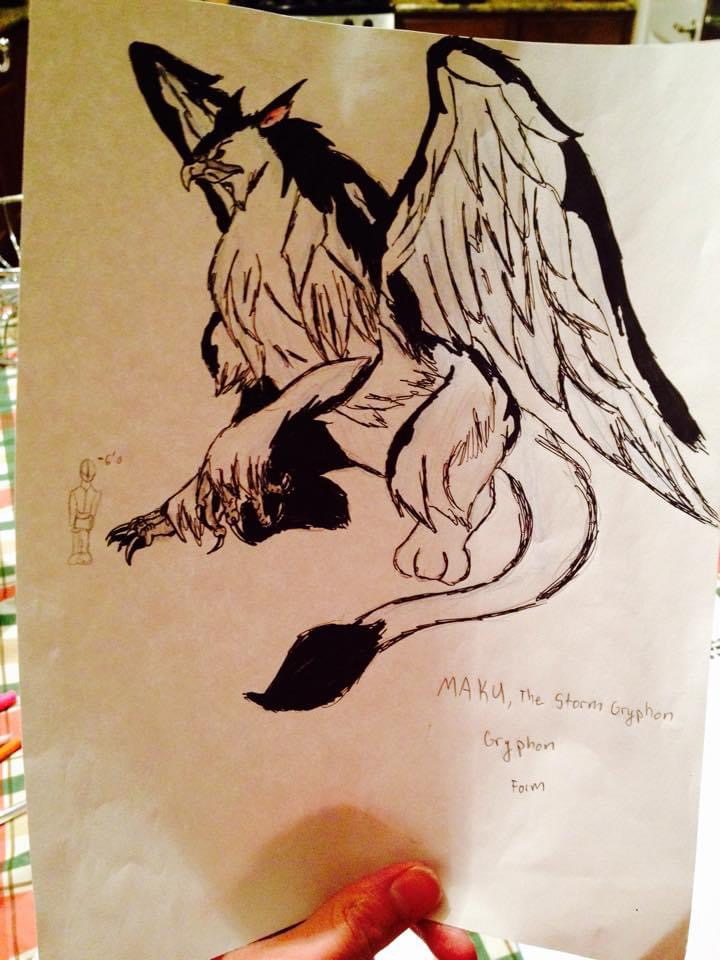 -6'0
MAKU, The Storm Gryphon
Gryphon
Form